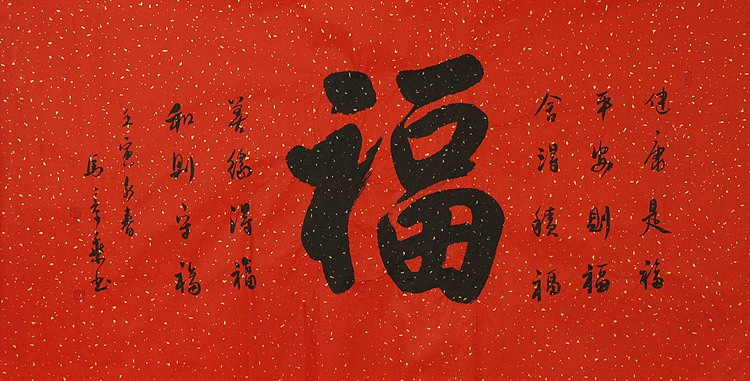 健康是福
平安則福
舍得積福
福
善緣得福
和則守福
壬寅新春
馬章乘书